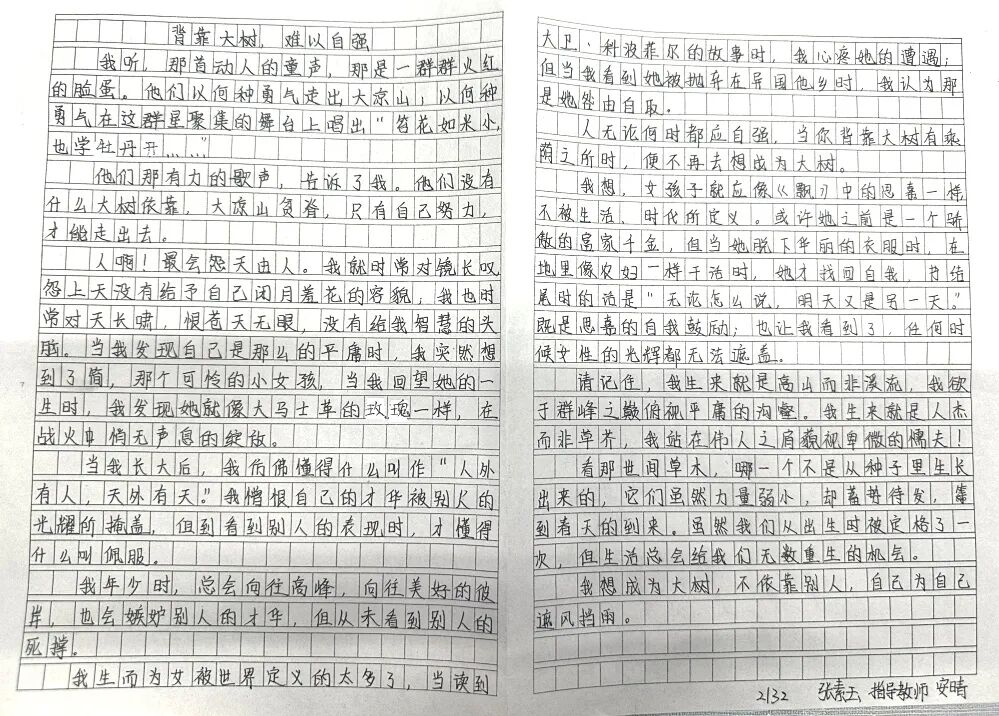 背靠大树，难以自强
我听，那首动人的童声，那是一群群火红
的脸蛋。他们以何种勇气走出大凉山，以何种
勇气在这群星聚集的舞台上唱出“苔花如米小，
也学牡丹开……”
他们那有力的歌声，告诉了我。他们没有
什么大树依靠，大凉山贫脊，只有自己努力，
才能走出去。
人啊！最会怨天由人。我就时常对镜长叹
怨上天没有给予自己闭月羞花的容貌，我也时
常对天长啸，恨苍天无眼，没有给我智慧的头
脑。当我发现自己是那么的平庸时，我突然想
到了简，那个可怜的小女孩，当我回望她的一
生时，我发现她就像大马士革的玫瑰一样，在
战火中悄无声息的绽放。
当我长大后，我仿佛懂得什么叫作“人外
有人，天外有天。”我憎恨自己的才华被别人的
光耀所掩盖，但到看到别人的表现时，才懂得
什么叫佩服。
我年少时，总会向往高峰，向往美好的彼
岸，也会嫉妒别人的才华，但从未看到别人的
死撑。
我生而为女被世界定义的太多了，当读到
大卫·科波菲尔的故事时，我心疼她的遭遇；
但当我看到她被抛弃在异国他乡时，我认为那
是她咎由自取。
人无论何时都应自强，当你背靠大树有乘
荫之所时，便不再去想成为大树。
我想，女孩子就应像《飘》中的思嘉一样
不被生活、时代所定义。或许她之前是一个骄
傲的富家千金，但当她脱下华丽的衣服时，在
地里像农妇一样干活时，她才找回自我，书结
尾时的话是“无论怎么说，明天又是另一天。”
既是思嘉的自我鼓励；也让我看到了，任何时
候女性的光辉都无法遮盖。
请记住，我生来就是高山而非溪流，我欲
于群峰之巅俯视平庸的沟壑。我生来就是人杰
而非草芥，我站在伟人之肩藐视卑微的懦夫！
看那世间草木，哪一个不是从种子里生长
出来的，它们虽然力量弱小，却蓄势待发，等
到春天的到来。虽然我们从出生时被定格了一
次，但生活总会给我们无数重生的机会。
我想成为大树，不依靠别人，自己为自己
遮风挡雨。
2132 张素玉 指导教师 安晴